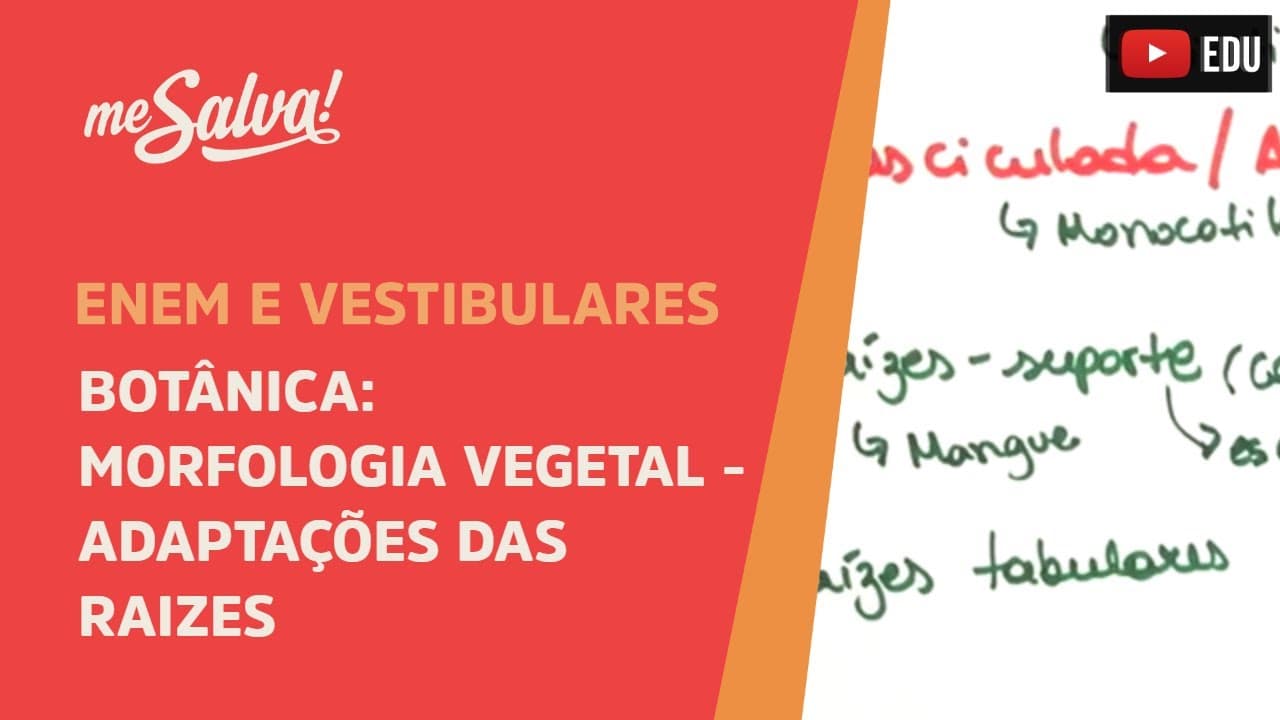 me Salva!
EDU
ENEM E VESTIBULARES
BOTÂNICA:
MORFOLOGIA VEGETAL -
ADAPTAÇÕES DAS
RAIZES
asciculada / A
↳ Monocoti
aízes - suporte (
↳ Mangue
aízes tabulares